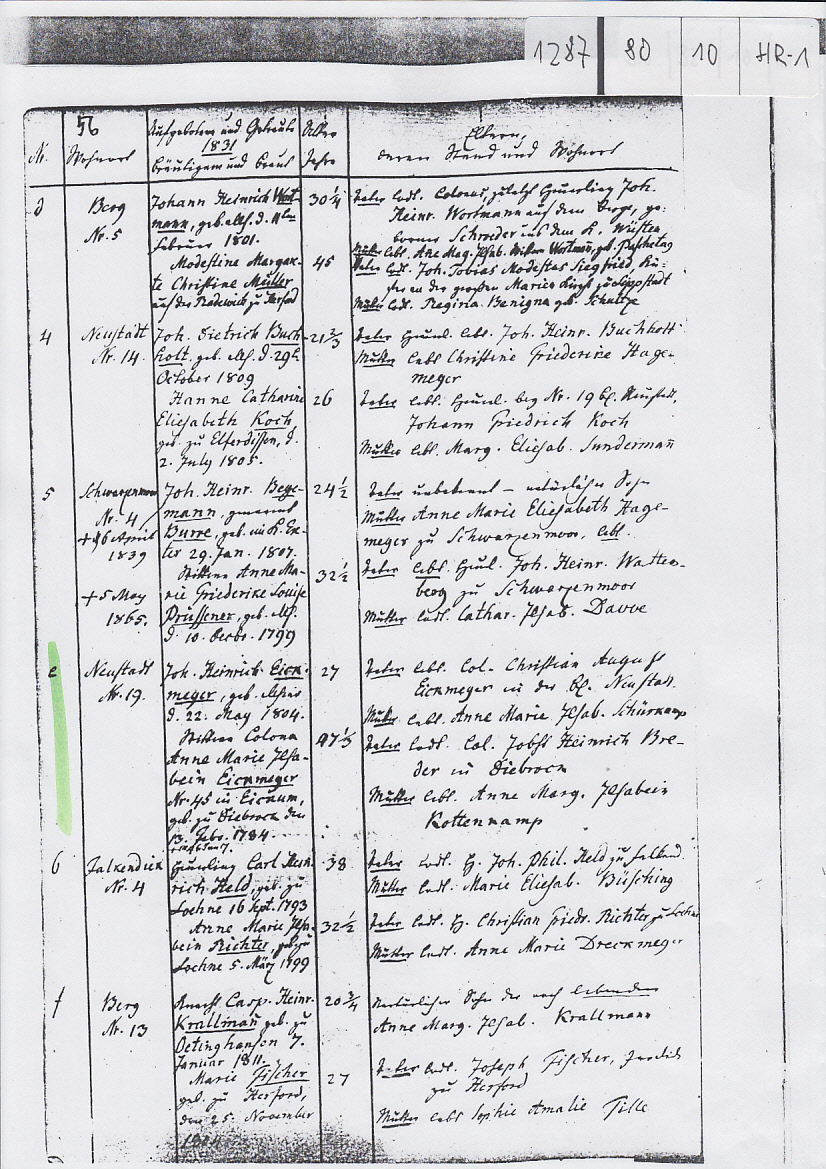 1287 80 10 HR-1
56
Aufgebotene und Getraute
1831
Bräutigam und Braut
Nr.
Wohnort
Alter
Jahre
Eltern,
deren Stand und Wohnort
d
Berg
Nr. 5
Johann Heinrich Wort-
mann, geb.
Februar 1801.
Modestine Margare-
te Christine Müller
auf der Radewich zu Herford
30 1/4
45
Vater ledl. Colonus, zuletzt Heuerling Joh.
Heinr. Wortmann auf dem Berge, ge-
borner Schroeder aus dem K. Wüsten
Mutter lebl. Ane Mag. Ilsab. Wortmann, geb.
Vater ledl. Joh. Tobias Modestus Siegfried, Kü-
ster an der großen Marien Kirche zu Lippstadt
Mutter ledl. Regina Benigna geb. Schultze
4
Neustadt
Nr. 14.
Joh. Dietrich Buch-
holt, geb. d. 29t
October 1809
Hanne Catharine
Eliesabeth Koch,
geb. zu Elferdissen, d.
2. July 1805.
21 2/3
26
Vater Heuerl. lebl. Joh. Heinr. Buchholt
Mutter lebl Christine Friederike Hage-
meyer
Vater lebl. Heuerl. bey Nr. 19 Neustadt,
Johann Friedrich Koch
Mutter lebl. Marg. Eliesab. Sundermañ
5
Schwarzenmoor
Nr. 4
+ 16 April
1839
+ 5 May
1865.
Joh. Heinr. Bege-
mann, genannt
Burre, geb. im K. Ex-
ter 29. Jan. 1807.
Wittwe Anne Ma-
rie Friederike Louise
Prüssener, geb.
d. 10. Octbr. 1799
24 1/2
32 1/2
Vater unbekannt - natürlicher Sohn
Mutter Anne Marie Eliesabeth Hage-
meyer zu Schwarzenmoor, lebl.
Vater lebl. Heuerl. Joh. Heinr. Watten-
berg zu Schwarzenmoor
Mutter ledl. Cathar. Ilsab. Dauve
e
Neustadt
Nr. 19.
Joh. Heinrich Eick-
meyer, geb.
d. 22. May 1804.
Wittwe Colona
Anne Marie Ilsa-
bein Eickmeyer
Nr. 45 in Eickum,
geb. zu Diebrock den
13. Febr. 1784.
27
47 1/3
Vater lebl. Col. Christian August
Eickmeyer in der Neustadt.
Mutter lebl. Anne Marie Ilsab. Schürkamp
Vater ledl. Col. Jobst Heinrich Bre-
der in Diebrock
Mutter lebl. Anne Marg. Ilsabein
Kottenkamp
6
Falkendiek
Nr. 4
Heuerling Carl Hein-
rich Held, geb. zu
Loehne 16 Sept. 1793
Anne Marie Ilsa-
bein Richter, geb. zu
Loehne 5. März 1799
38
32 1/2
Vater ledl. H. Joh. Phil. Held zu Falkend.
Mutter ledl. Marie Eliesab. Büsching
Vater ledl. H. Christian Friedr. Richter zu Loehne
Mutter ledl. Anne Marie Dreckmeyer
f
Berg
Nr. 13
Knecht Casp. Heinr.
Krallmañ geb. zu
Oetinghausen 7.
Januar 1811.
Marie Fischer
geb. zu Herford,
den 25. November
20 3/4
27
Natürlicher Sohn der noch lebenden
Anne Marg. Ilsab. Krallmann
Vater ledl. Joseph Fischer,
zu Herford
Mutter lebl Sophie Amalie Tille